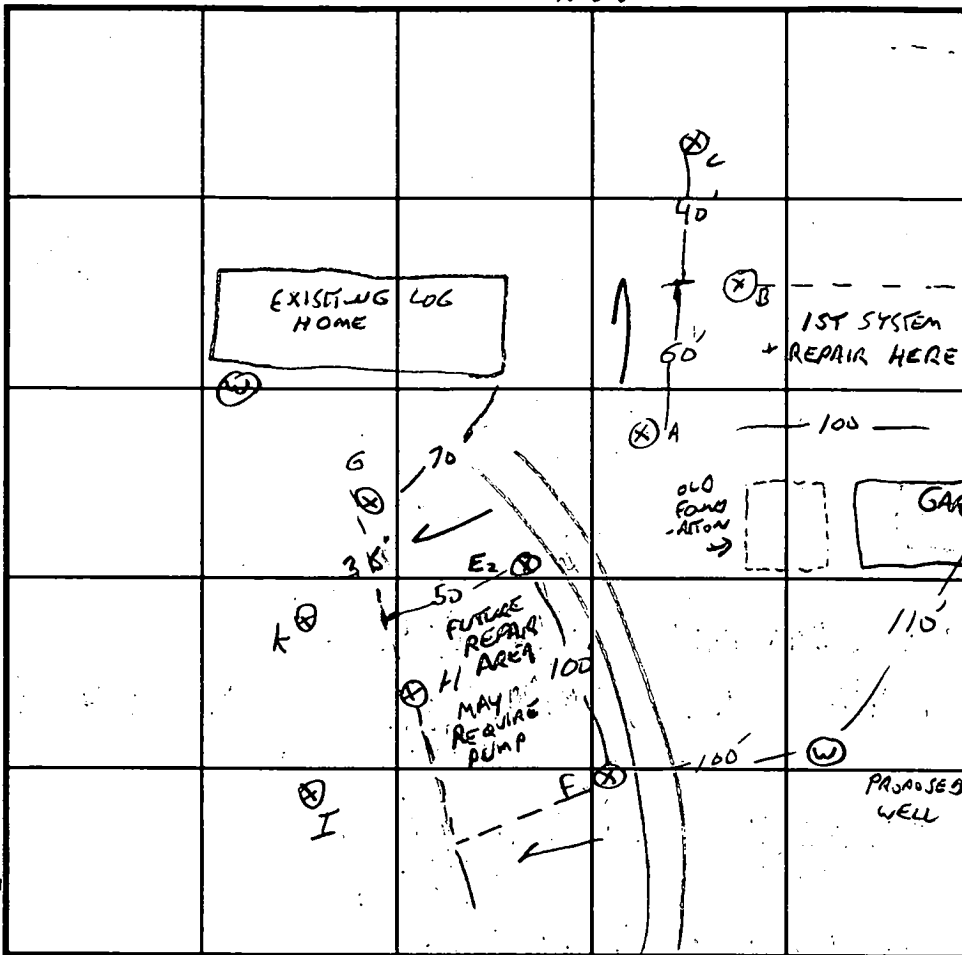 C
40'
EXISTING LOG
HOME
B
1ST SYSTEM
+ REPAIR HERE
60'
W
A
100
G
70
OLD
FOUND
-ATION
GAR
35'
E2
50
FUTURE
REPAIR
AREA
K
H
100'
110'
MAY
REQUIRE
PUMP
W
100'
F
I
PROPOSED
WELL